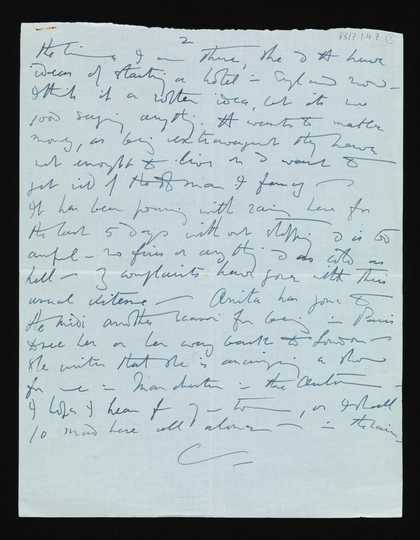 2
the time I am there, she & H have
ideas of starting a hotel in England now –
I think it a rotten idea, but its no
good saying anything. H wants to make
money, as being extravagant they have
not enough to live on & want to
get rid of the man I fancy –
It has been pouring with rain here for
the last 5 days without stopping & is too
awful – no fires or anything & as cold as
hell – complaints have gone with this
usual
Anita has gone to
the midi another reason for being in Paris
to see her on her way back to London –
She writes that she is arranging a show
for me in Manchester in the Autumn –
I hope I hear from you, or I shall
go mad here all alone – in the rain –
C –